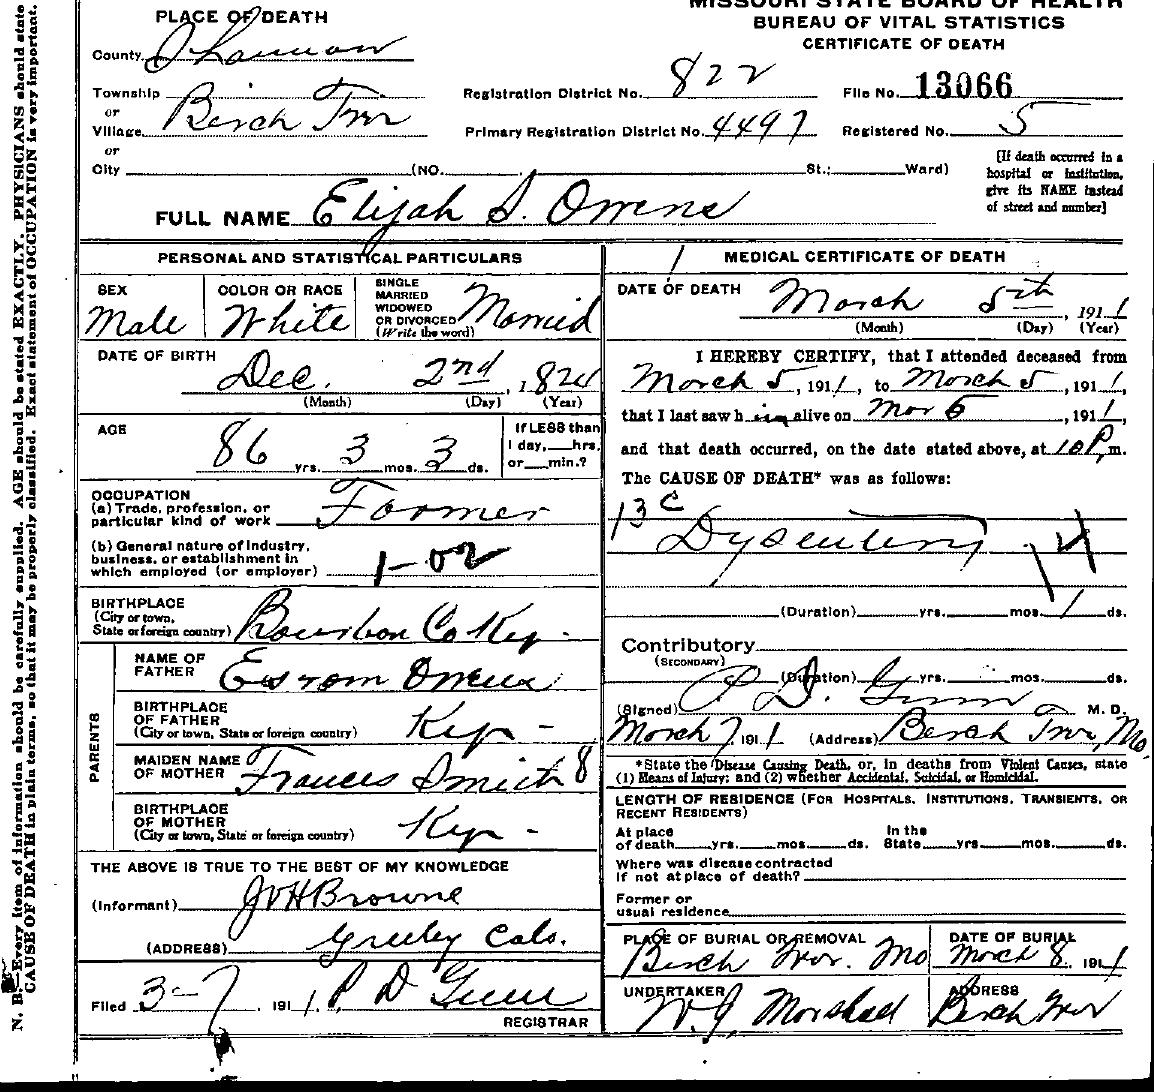 MISSOURI STATE BOARD OF HEALTH
BUREAU OF VITAL STATISTICS
CERTIFICATE OF DEATH
PLACE OF DEATH
County Shannon
Township
or
Village Birch Tree
or
City (NO. St.; Ward)
Registration District No. 822
File No. 13066
Primary Registration District No. 4497
Registered No. 5
[If death occurred in a
hospital or institution,
give its NAME instead
of street and number]
FULL NAME Elijah S. Owens
PERSONAL AND STATISTICAL PARTICULARS
SEX
Male
COLOR OR RACE
White
SINGLE
MARRIED
WIDOWED
OR DIVORCED
(Write the word)
Married
DATE OF BIRTH
Dec. 2nd, 1824
(Month) (Day) (Year)
AGE
86 yrs. 3 mos. 3 ds.
If LESS than
1 day, hrs.
or min.?
OCCUPATION
(a) Trade, profession, or
particular kind of work Farmer
(b) General nature of industry,
business, or establishment in
which employed (or employer)
1-02
BIRTHPLACE
(City or town,
State or foreign country)
Bourbon Co Ky.
PARENTS
NAME OF
FATHER
Esrom Owens
BIRTHPLACE
OF FATHER
(City or town, State or foreign country)
Ky -
MAIDEN NAME
OF MOTHER
Frances Smith 8
BIRTHPLACE
OF MOTHER
(City or town, State or foreign country)
Ky -
THE ABOVE IS TRUE TO THE BEST OF MY KNOWLEDGE
(Informant) JVH Browne
(ADDRESS) Greeley Colo.
Filed 3-7, 1911. P D Gunn
REGISTRAR
MEDICAL CERTIFICATE OF DEATH
DATE OF DEATH
March 5th, 1911
(Month) (Day) (Year)
I HEREBY CERTIFY, that I attended deceased from
March 5, 1911, to March 5, 1911,
that I last saw him alive on Mar 5, 1911,
and that death occurred, on the date stated above, at 10 P m.
The CAUSE OF DEATH* was as follows:
13 C
Dysentery
14
(Duration) yrs. mos. 1 ds.
Contributory
(SECONDARY)
(Duration) yrs. mos. ds.
(Signed) P D. Gunn M. D.
March 7, 1911 (Address) Birch Tree, Mo
*State the Disease Causing Death, or, in deaths from Violent Causes, state
(1) Means of Injury; and (2) whether Accidental, Suicidal, or Homicidal.
LENGTH OF RESIDENCE (FOR HOSPITALS, INSTITUTIONS, TRANSIENTS, OR
RECENT RESIDENTS)
At place
of death yrs. mos. ds.
In the
State yrs. mos. ds.
Where was disease contracted
if not at place of death?
Former or
usual residence
PLACE OF BURIAL OR REMOVAL
Birch Tree. Mo
DATE OF BURIAL
March 8, 1911
UNDERTAKER
W. J. Marshall
ADDRESS
Birch Tree
N. B.—Every item of information should be carefully supplied. AGE should be stated EXACTLY. PHYSICIANS should state
CAUSE OF DEATH in plain terms, so that it may be properly classified. Exact statement of OCCUPATION is very important.